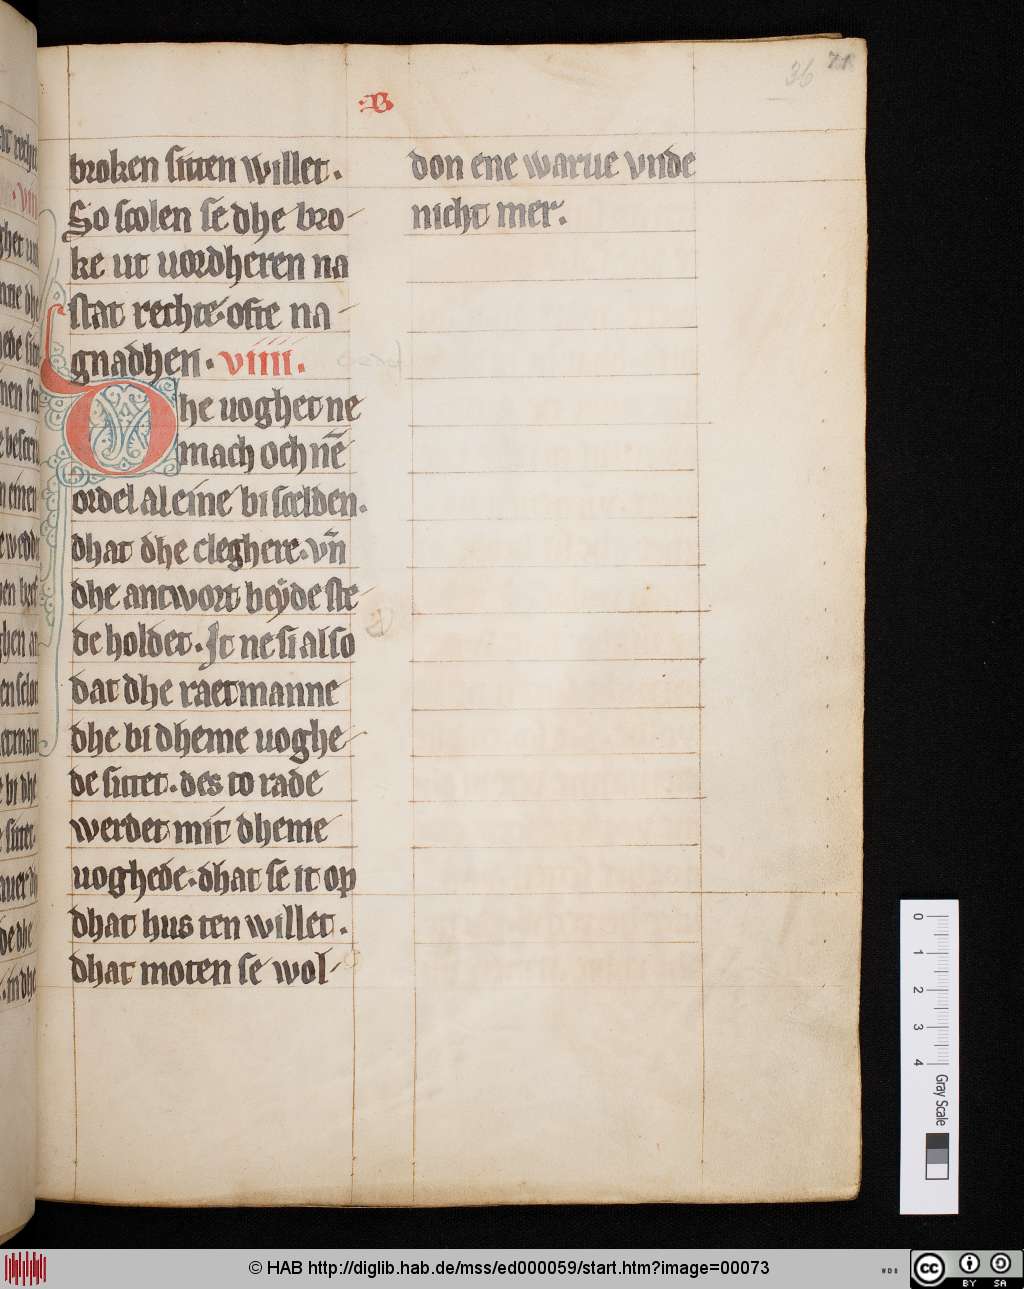 36 71
B
broken sitten willet.
So scolen se dhe bro-
ke ut uordheren na
stat rechte. ofte na
gnadhen. viiii.
Dhe uoghet ne
mach och nē
ordel al eine bi scelden.
dhat dhe cleghere. vn̄
dhe antwort beyde ste-
de holdet. It ne si also
dat dhe raetmanne
dhe bi dheme uoghe-
de sittet. des to rade
werdet mit dheme
uoghede. dhat se it op
dhat hus ten willet.
dhat moten se wol-
don ene warue vnde
nicht mer.
0 1 2 3 4 Gray Scale
© HAB http://diglib.hab.de/mss/ed000059/start.htm?image=00073
WDB
cc BY SA